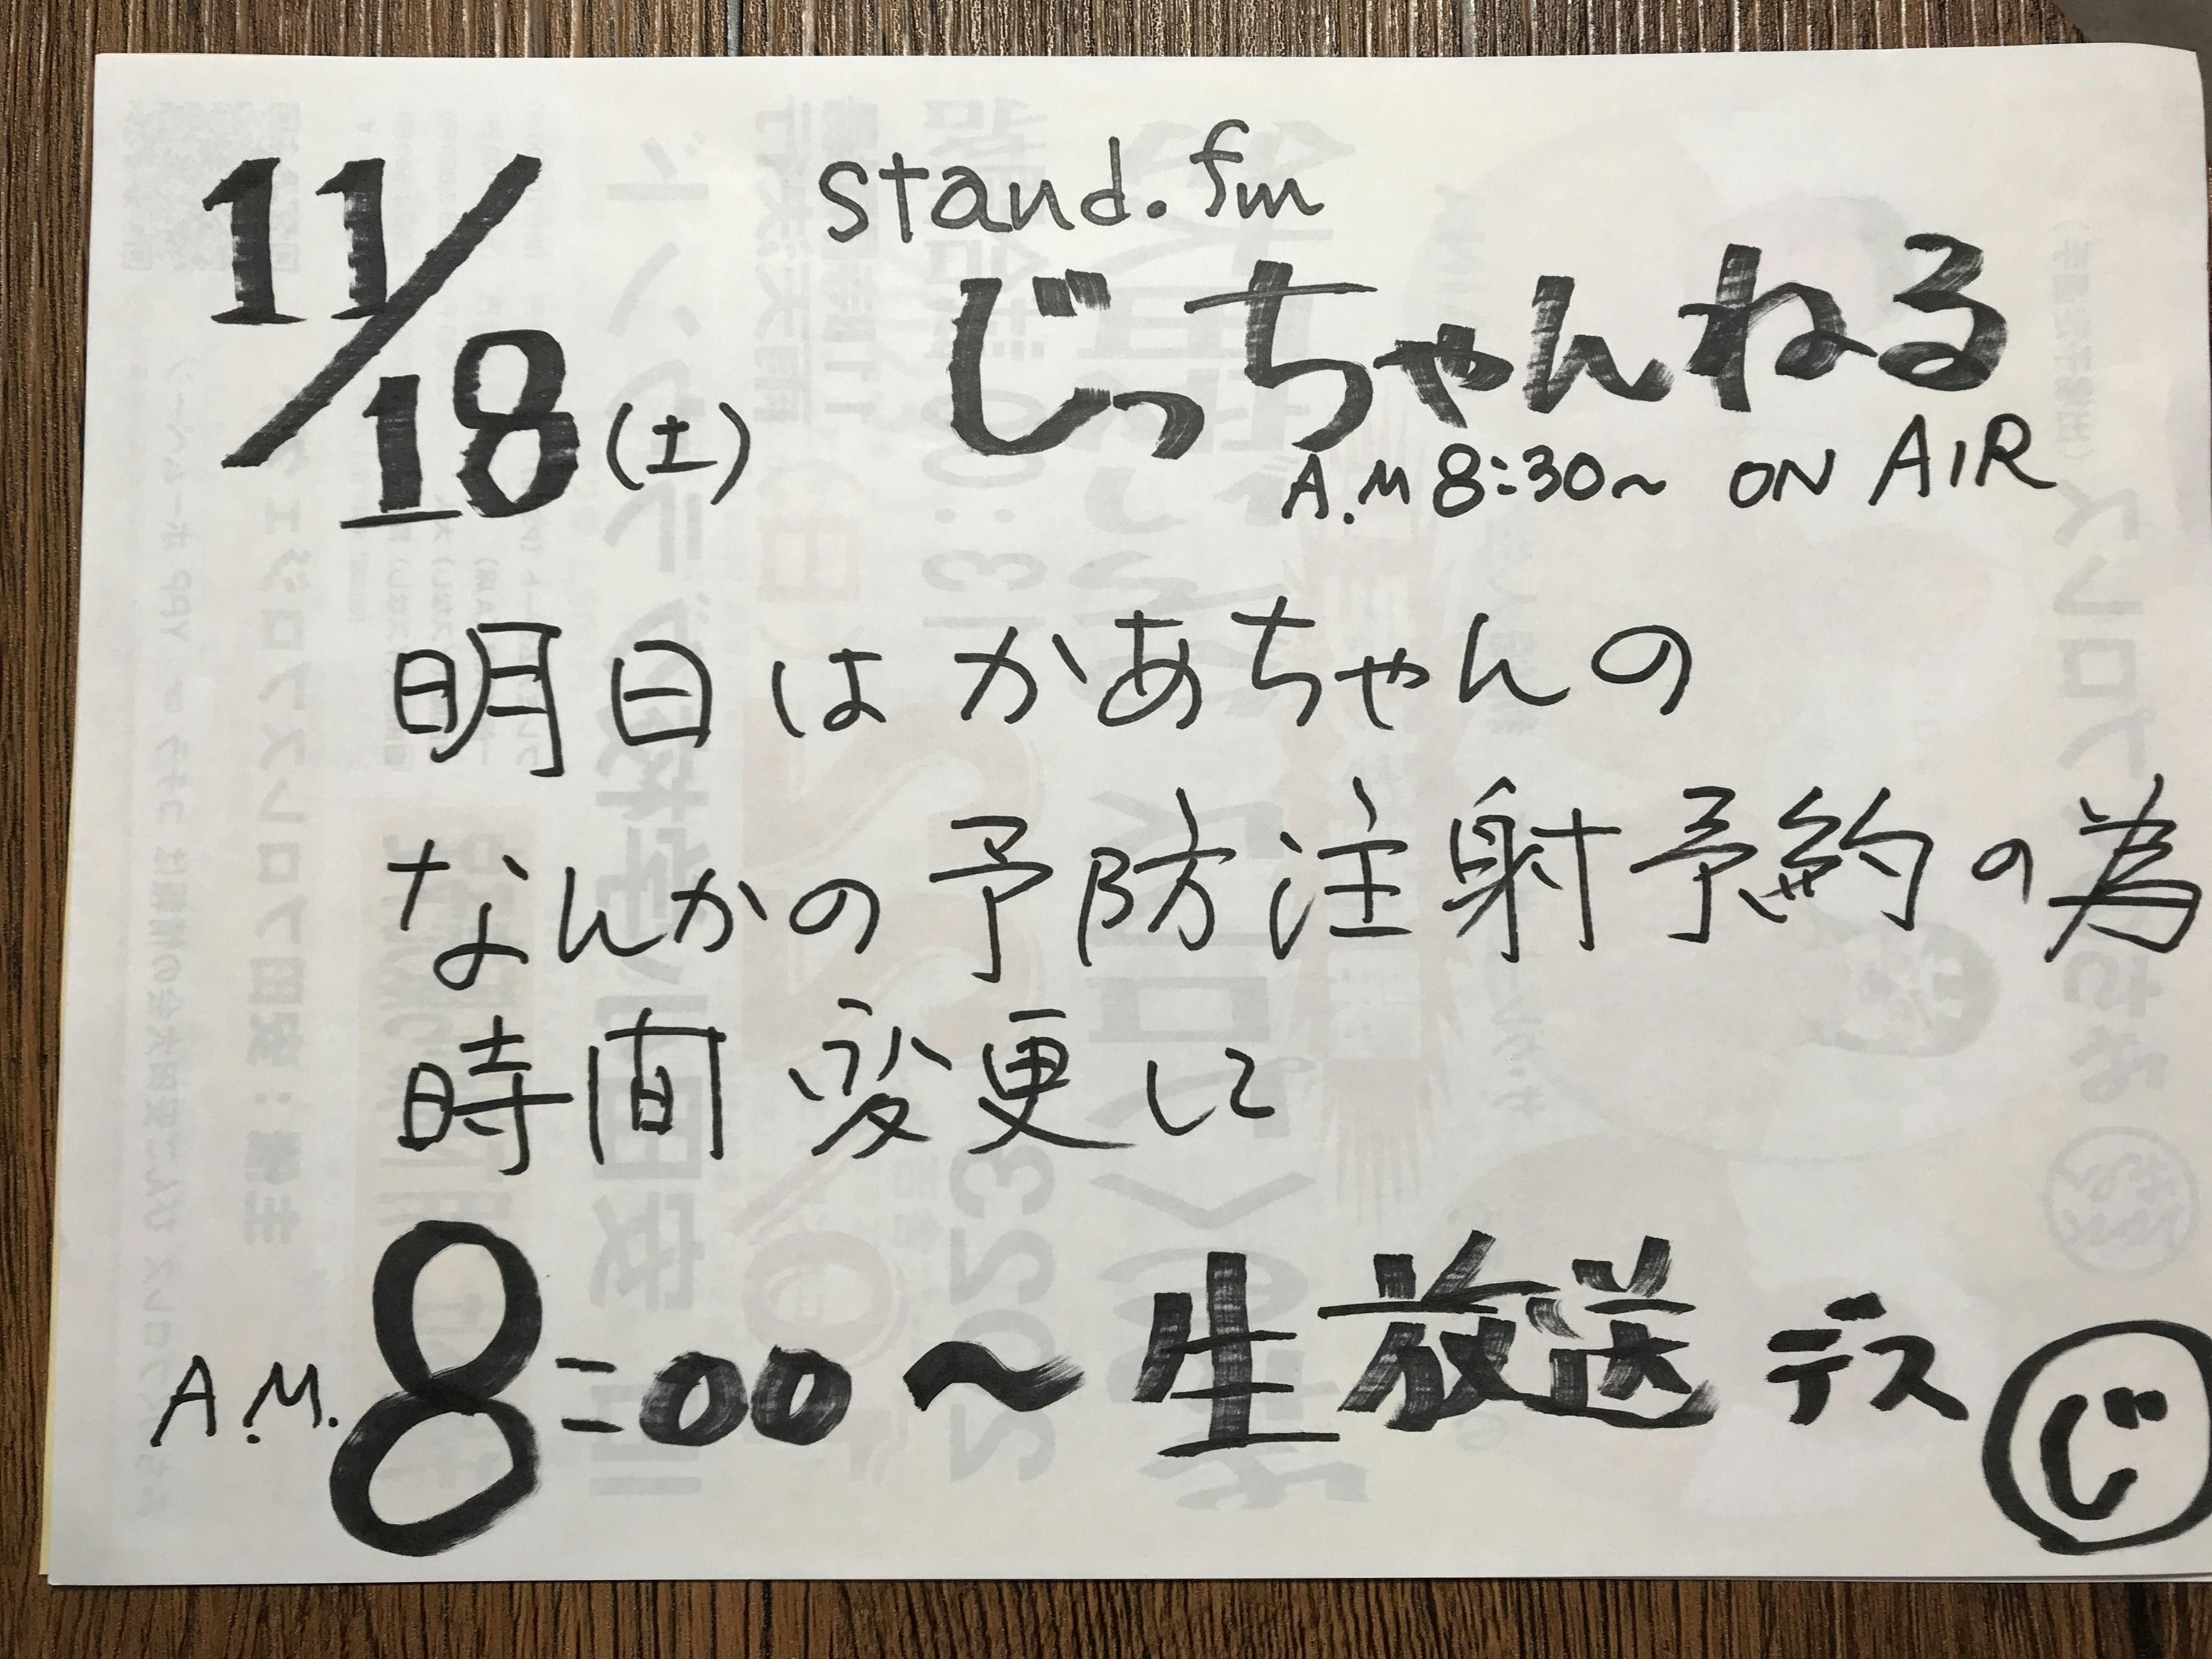 11/18(土)
stand.fm
じっちゃんねる
A.M 8:30〜 ON AIR
明日はかあちゃんの
なんかの予防注射予約の為
時間変更にて
A.M. 8:00〜生放送デス
じ